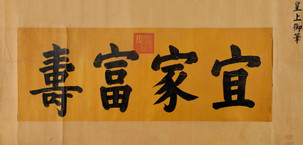 皇上御筆
宜家富壽